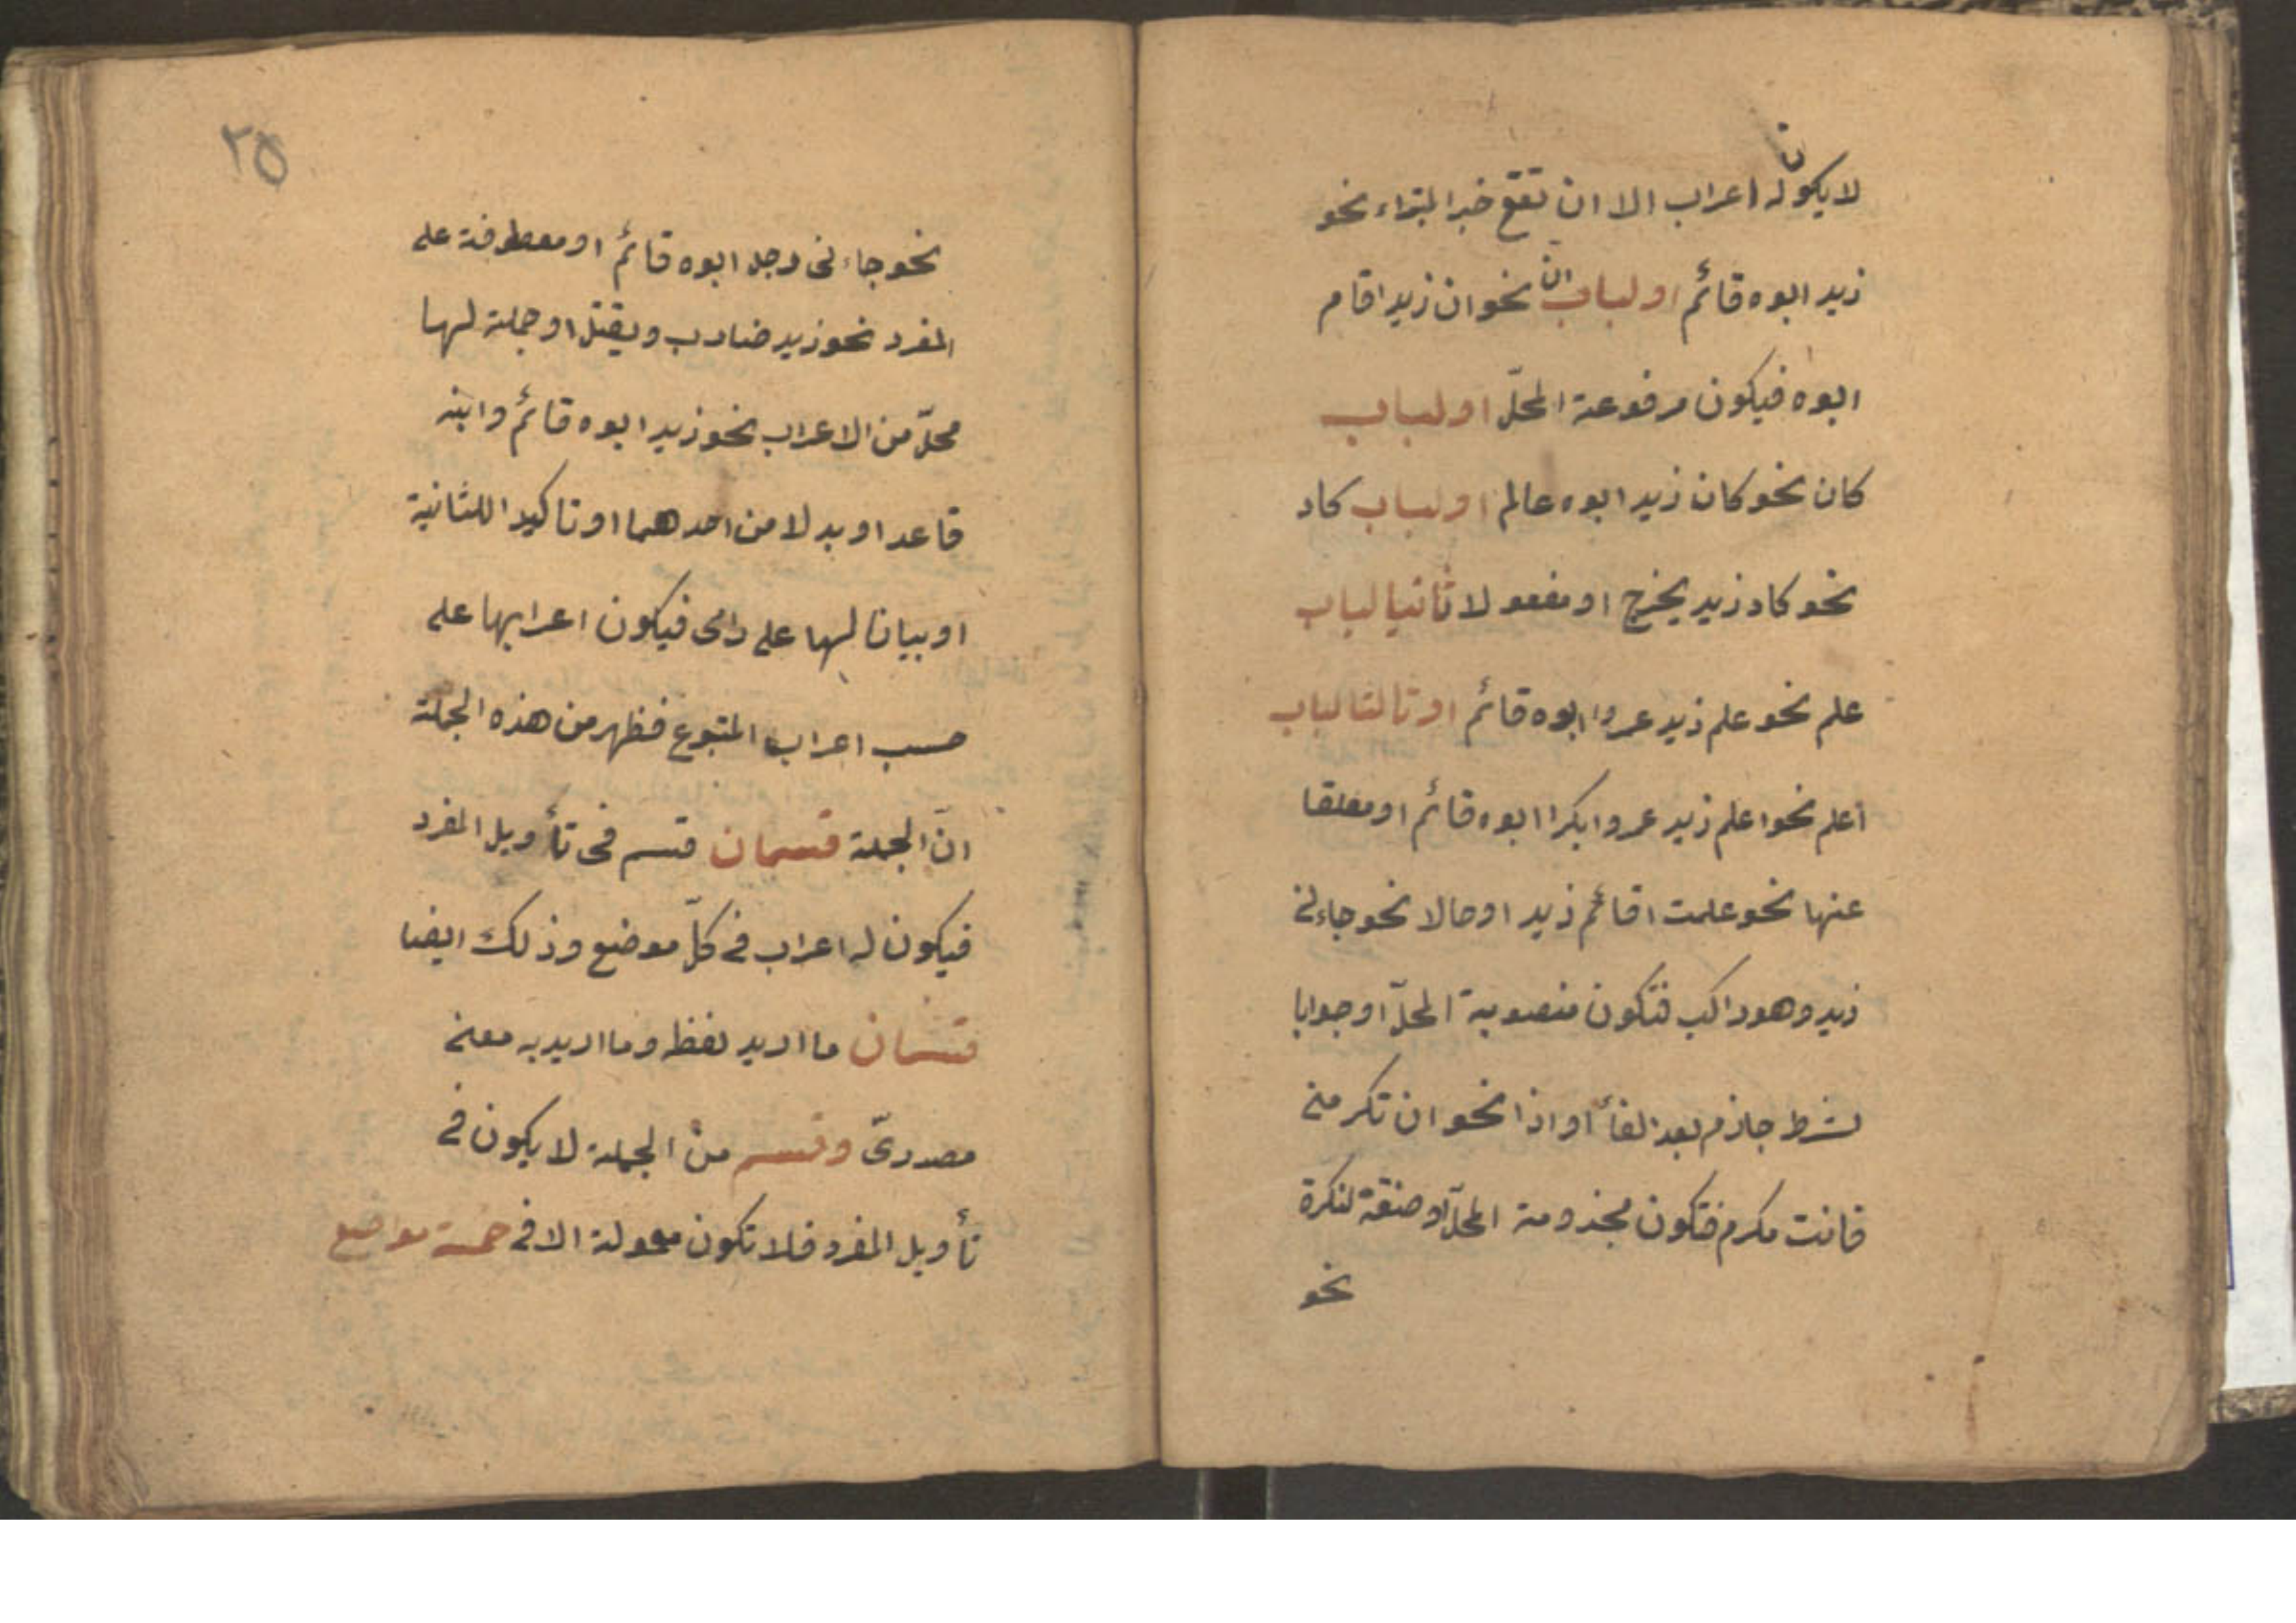 لا يكون له اعراب الا ان تقع خبر المبتداء نحو
زيد ابوه قائم او لباب ان نحو ان زيدا قام
ابوه فيكون مرفوعة المحلّ او لباب
كان نحو كان زيد ابوه عالم او لباب كاد
نحو كاد زيد يخرج او مفعولا ثانيا لباب
علم نحو علم زيد عمروا ابوه قائم او ثالثا لباب
اعلم نحو اعلم زيد عمروا بكرا ابوه قائم او معلقا
عنها نحو علمت اقائم زيد او حالا نحو جاءنى
زيد وهو راكب فتكون منصوبة المحلّ او جوابا
لشرط جازم بعد الفأ او اذا نحو ان تكرمنى
فانت مكرم فتكون مجزومة المحلّ او صفة لنكرة
نحو
٢٥
نحو جاءنى رجل ابوه قائم او معطوفة على
المفرد نحو زيد ضارب ويقتل او جملة لها
محلّ من الاعراب نحو زيد ابوه قائم وابنه
قاعد او بدلا من احدهما او تاكيدا للثانية
او بيانا لها على رائ فيكون اعرابها على
حسب اعراب المتبوع فظهر من هذه الجملة
انّ الجملة قسمان قسم فى تأويل المفرد
فيكون له اعراب فى كلّ موضع وذلك ايضا
قسمان ما اريد لفظه وما اريد به معنى
مصدرىّ وقسم من الجملة لا يكون فى
تأويل المفرد فلا تكون معمولة الا فى خمسة مواضع